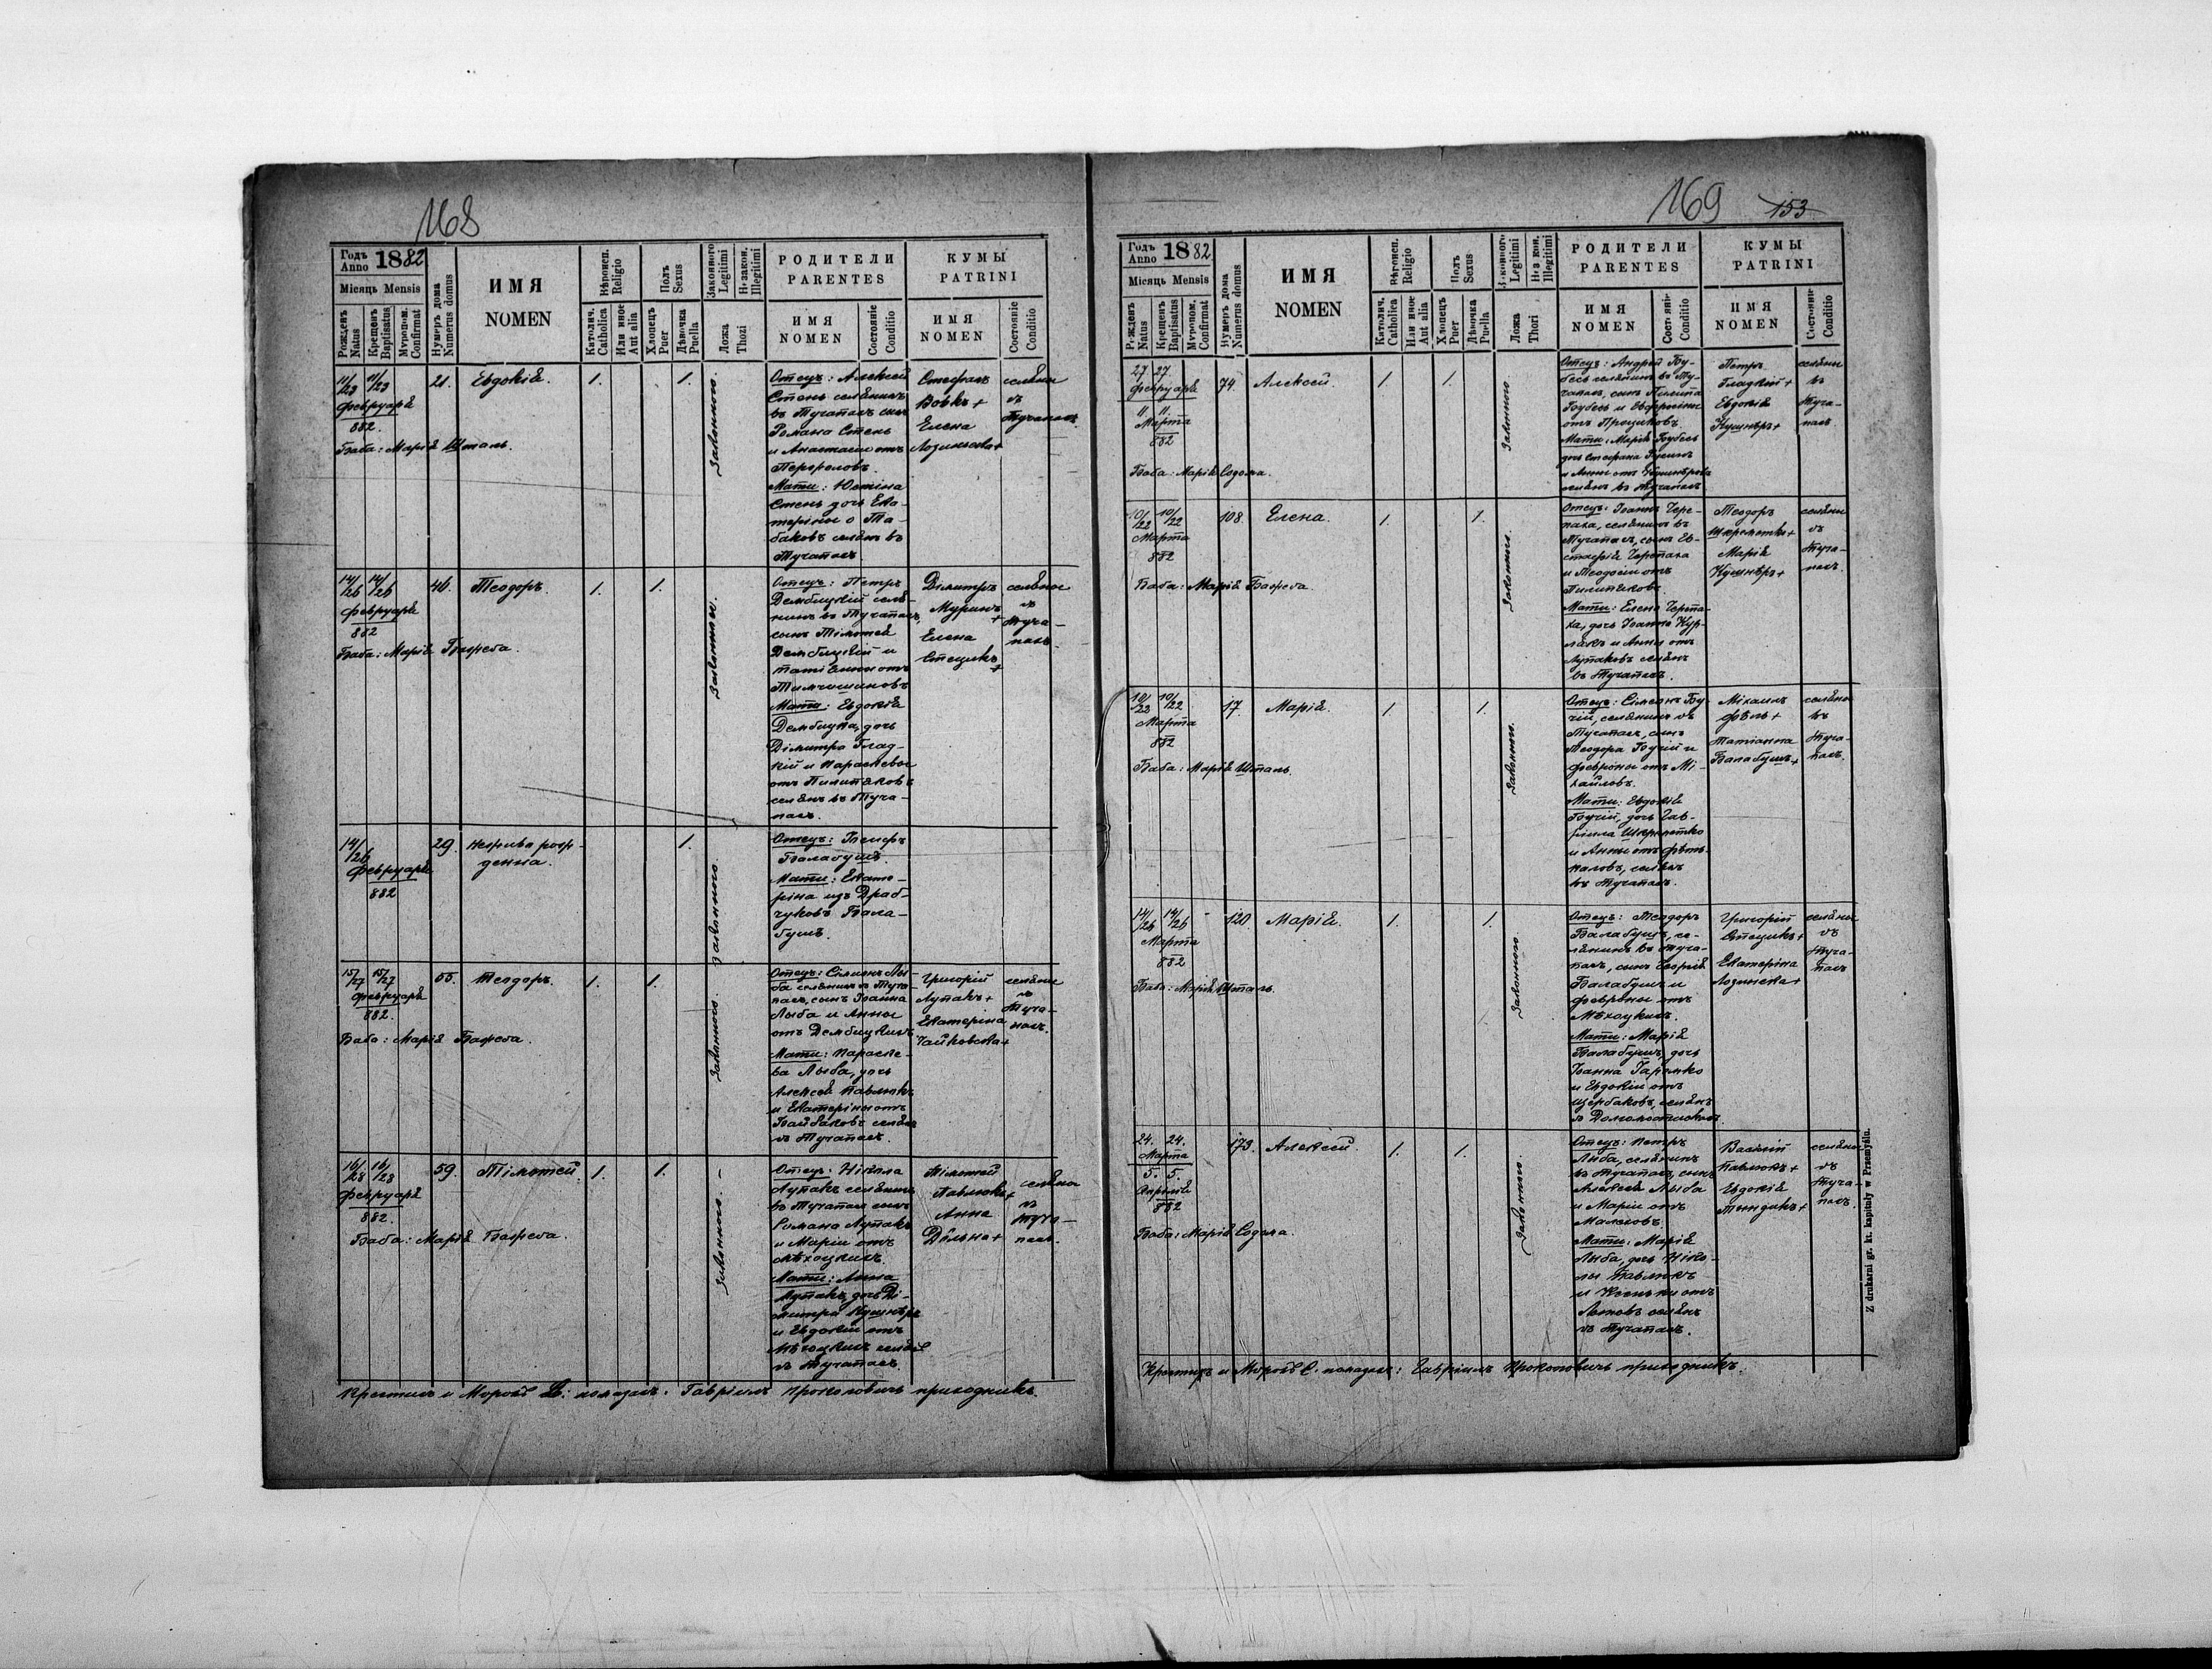 168
Годъ Anno 1882
Місяць Mensis
Рожденъ Natus
Крещенъ Baptisatus
Мѵропом. Confirmat
Нумеръ дома Numerus domus
ИМЯ
NOMEN
Вѣроисп. Religio
Католич. Catholica
Или иное Aut alia
Полъ Sexus
Хлопецъ Puer
Дѣвочка Puella
Законного Legitimi
Не закон. Illegitimi
Ложа Thozi
РОДИТЕЛИ
PARENTES
ИМЯ
NOMEN
Состояніе Conditio
КУМЫ
PATRINI
ИМЯ
NOMEN
Состояніе Conditio
11/23 11/23
Февруарія
882.
21.
Евдокія.
1.
1.
Законного.
Отецъ: Алексей
Стень селянинъ
въ Тучапахъ сынъ
Романа Стень
и Анастасіи отъ
Мати: Юстіна
Стень дочь Ека-
теріны о Та-
баковъ селянъ въ
Тучапахъ
Стефанъ
Вовкъ +
Елена
Лозинска +
селяне
въ
Тучапахъ
Баба: Марія Шталь.
14/26 14/26
Февруарія
882
46.
Теодоръ.
1.
1.
Законного.
Отецъ: Петръ
Дембицкій селя-
нинъ въ Тучапахъ,
сынъ Тімотея
Дембицкій и
Татіянны отъ
Тимчишиновъ
Мати: Евдокія
Дембицка, дочь
Дімитра Глад-
кій и Параскевы
отъ Пилипяковъ
селянъ въ Туча-
пахъ.
Дімитръ
Муринъ +
Елена
Стецикъ +
селяне
въ
Туча-
пахъ
Баба: Марія Бажева.
14/26
Февруарія
882
29.
Неживо рож-
денна.
1.
Законного
Отецъ:
Балабушъ.
Мати: Екате-
ріна изъ Драб-
чуковъ Бала-
бушъ.
15/27 15/27
Февруарія
882.
55.
Теодоръ.
1.
1.
Законного.
Отецъ: Сімеонъ Лы-
ба селянинъ въ Туча-
пахъ, сынъ Іоанна
Лыба и Анны
отъ Дембицкихъ
Мати: Параске-
ва Лыба, дочь
Алексея Павлюкъ
и Екатеріны отъ
Байбаковъ селянъ
въ Тучапахъ.
Григорій
Лупакъ +
Екатеріна
Чайковска +
селяне
въ
Туча-
пахъ.
Баба: Марія Бажева.
16/28 16/28
Февруарія
882.
59.
Тімотей.
1.
1.
Законного. —
Отецъ: Нікола
Лупакъ селянинъ
въ Тучапахъ сынъ
Романа Лупакъ
и Маріи отъ
Мѣхоцкихъ.
Мати: Анна
Лупакъ, дочь Ді-
митра Кушнѣръ
и Евдокіи отъ
Мѣхоцкихъ селянъ
въ Тучапахъ.
Тімотей
Павлюкъ +
Анна
Дольна +
селяне
въ
Туча-
пахъ.
Баба: Марія Бажева.
Крестилъ и Мѵромъ С: помазалъ: Гавріилъ Прокоповичъ приходникъ.
169 153
Годъ Anno 1882
Місяць Mensis
Рожденъ Natus
Крещенъ Baptisatus
Мѵропом. Confirmat
Нумеръ дома Numerus domus
ИМЯ
NOMEN
Вѣроисп. Religio
Католич. Catholica
Или иное Aut alia
Полъ Sexus
Хлопецъ Puer
Дѣвочка Puella
Законного Legitimi
Не закон. Illegitimi
Ложа Thori
РОДИТЕЛИ
PARENTES
ИМЯ
NOMEN
Состояніе Conditio
КУМЫ
PATRINI
ИМЯ
NOMEN
Состояніе Conditio
27. 27.
Февруарія
11. 11.
Марта
882
74.
Алексей.
1.
1.
Законного.
Отецъ: Андрей
селянинъ въ Ту-
чапахъ, сынъ Филипа
и Евфрозины
отъ Проциковъ.
Мати: Марія
дочь Стефана
и Анны отъ
селянъ въ Тучапахъ
Петръ
Гладкій +
Евдокія
Кушнѣръ +
селяне
въ
Туча-
пахъ
Баба: Марія Содома.
10/22 10/22
Марта
882
108.
Елена.
1.
1.
Законного.
Отецъ: Іоаннъ Чере-
паха, селянинъ въ
Тучапахъ, сынъ Ев-
стафія Черепаха
и Теодосіи отъ
Пилипяковъ.
Мати: Елена Черепа-
ха, дочь Іоанна Кур-
лякъ и Анны отъ
Лупаковъ селянъ
въ Тучапахъ.
Теодоръ
Шкреметко +
Марія
Кушнѣръ +
селяне
въ
Туча-
пахъ.
Баба: Марія Бажева.
10/22 10/22
Марта
882
17.
Марія.
1.
1.
Законного.
Отецъ: Сімеонъ Бу-
чій, селянинъ въ
Тучапахъ, сынъ
Теодора Бучій и
Февроны отъ Мі-
хайловъ.
Мати: Евдокія
Бучій, дочь Гав-
ріила Шкреметко
и Анны отъ
селянъ
въ Тучапахъ.
Міхаилъ
Фѣль +
Татіанна
Балабушъ +
селяне
въ
Туча-
пахъ.
Баба: Марія Шталь.
14/26 14/26
Марта
882
120.
Марія.
1.
1.
Законного.
Отецъ: Теодоръ
Балабушъ, се-
лянинъ въ Туча-
пахъ, сынъ Георгія
Балабушъ и
Февроны отъ
Мѣхоцкихъ.
Мати: Марія
Балабушъ, дочь
Іоанна Гаремко
и Евдокіи отъ
Щербаковъ, селянъ
Григорій
Стецикъ +
Екатеріна
Лозинска +
селяне
въ
Туча-
пахъ
Баба: Марія Шталь.
24. 24.
Марта
5. 5.
Апрілія
882
173.
Алексей.
1.
1.
Законного.
Отецъ: Петръ
Лыба, селянинъ
въ Тучапахъ, сынъ
Алексея Лыба
и Маріи отъ
Мати: Марія
Лыба, дочь Ніко-
лы Павлюкъ
и Ксеньки отъ
селянъ
въ Тучапахъ.
Василій
Павлюкъ +
Евдокія
Тындикъ +
селяне
въ
Туча-
пахъ.
Баба: Марія Содома.
Крестилъ и Мѵромъ С. помазалъ: Гавріилъ Прокоповичъ приходникъ.
Z drukarni gr. kt. kapituły w Przemyślu.